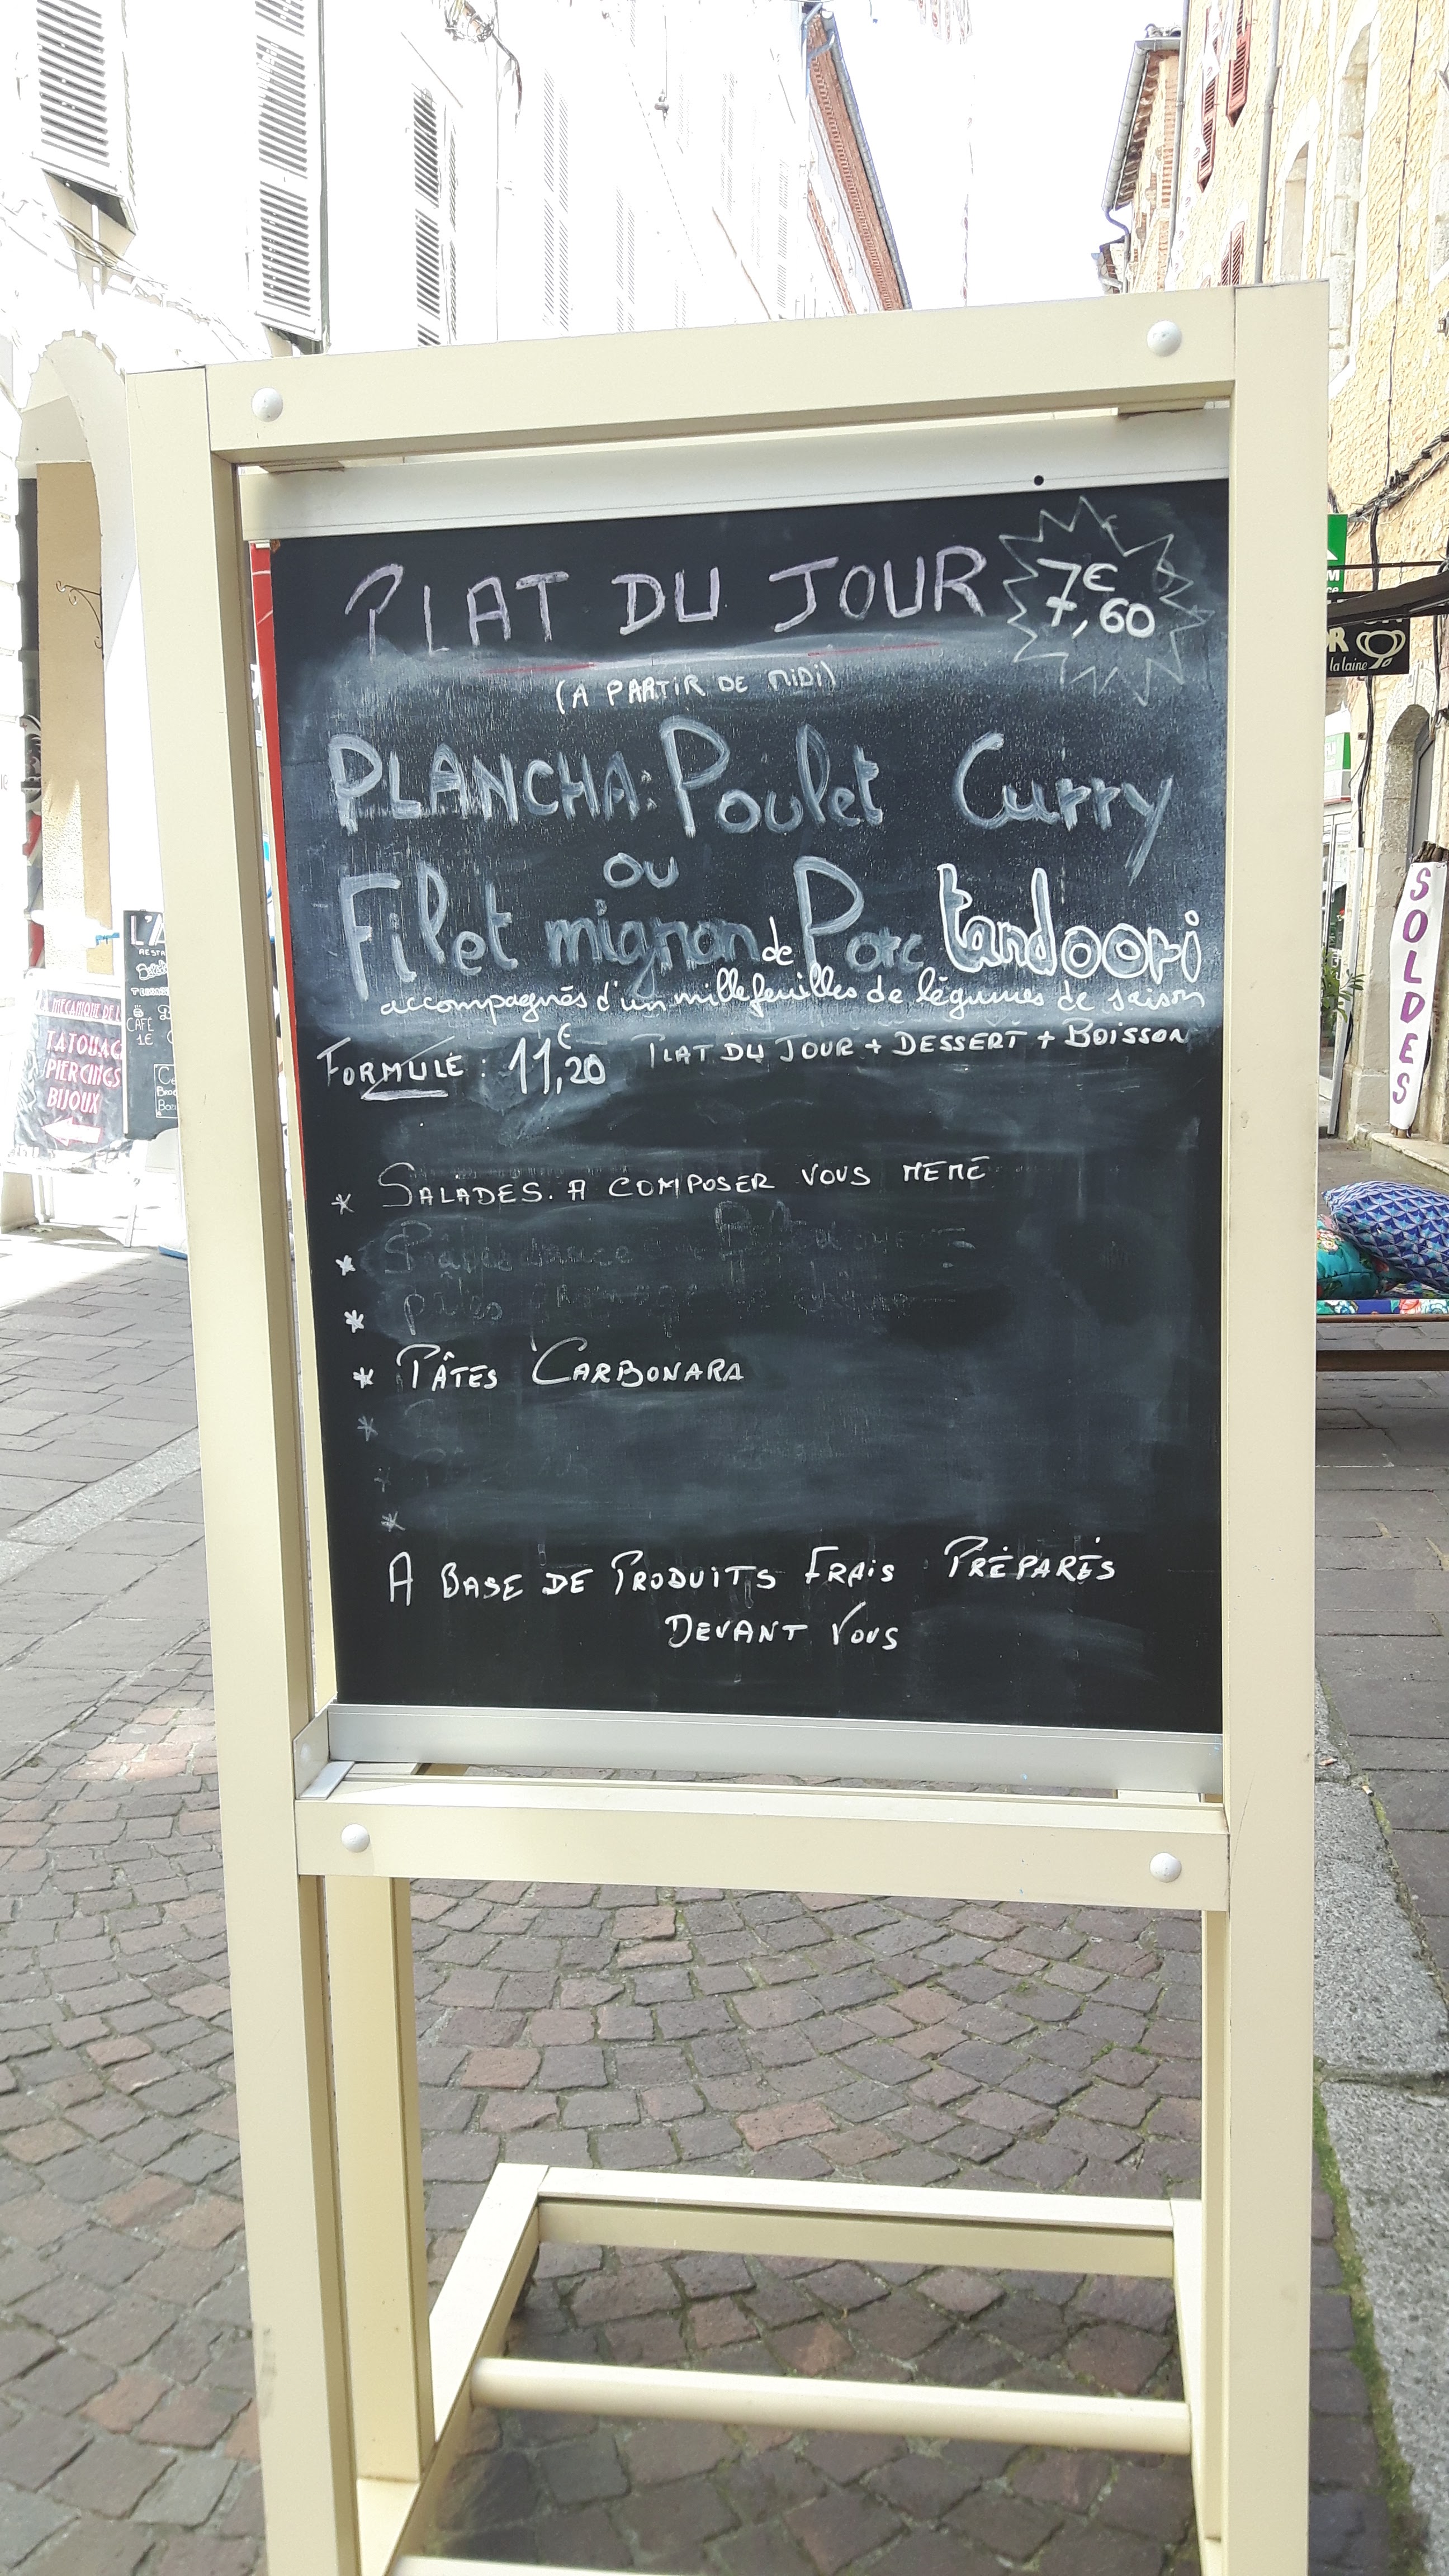 PLAT DU JOUR
7€,60
(A PARTIR DE MIDI)
PLANCHA: Poulet Curry
OU
Filet mignon de Porc tandoori
accompagnés d'un millefeuilles de légumes de saison
FORMULE : 11€,20 PLAT DU JOUR + DESSERT + BOISSON
* SALADES. A COMPOSER VOUS MEME
*
* pâtes
* PÂTES CARBONARA
*
*
A BASE DE PRODUITS FRAIS PRÉPARÉS
DEVANT VOUS
L'A
CAFE
1E
MECANIQUE DE L
TATOUAG
PIERCINGS
BIJOUX
la laine
SOLDES